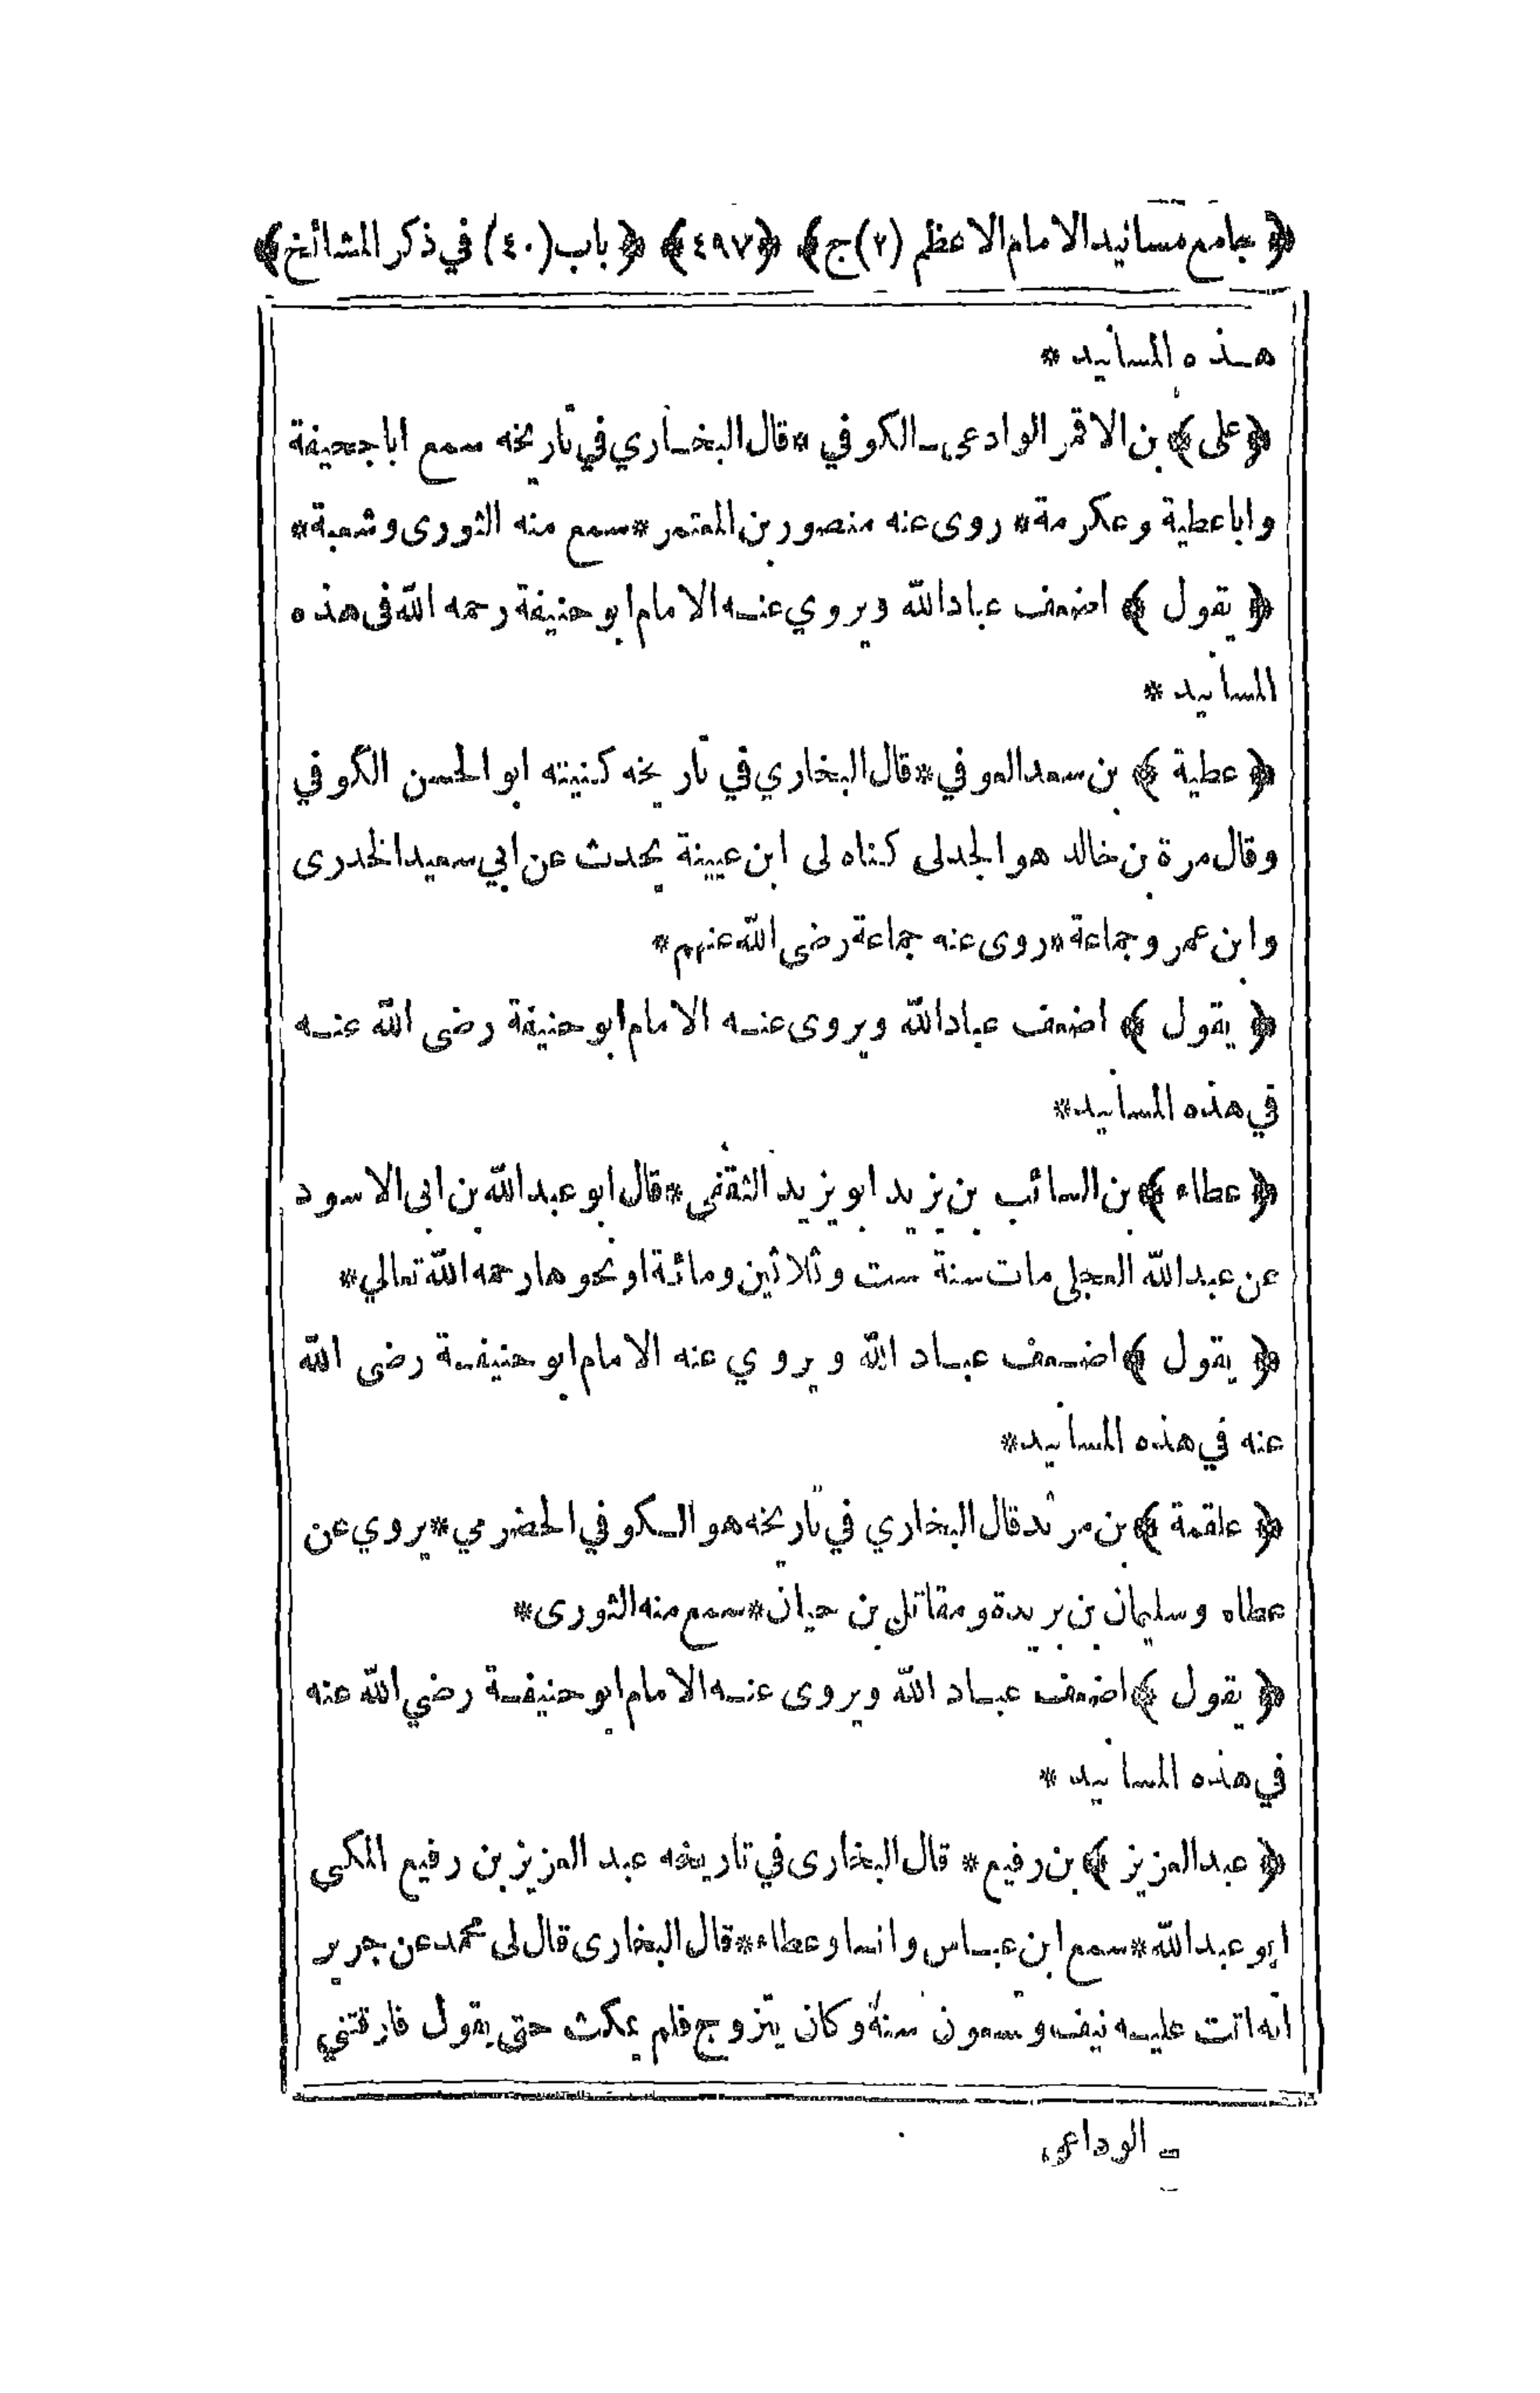 ﴿ جامع مسانيد الامام الاعظم (٢) ج ﴾ ﴿ ٤٩٧ ﴾ ﴿ باب (٤٠) في ذكر المشائخ ﴾
هـذه المسانيد *
﴿ على ﴾ بن الاقمر الوادعى ـ الكوفي * قال البخاري في تاريخه سمع اباجحيفة
واباعطية وعكرمة * روى عنه منصور بن المعتمر * سمع منه الثورى وشعبة *
﴿ يقول ﴾ اضعف عبادالله ويروي عنـه الامام ابو حنيفة رحمه الله فى هذه
المسانيد *
﴿ عطية ﴾ بن سعد العوفي * قال البخاري في تاريخه كنيته ابو الحسن الكوفي
وقال مرة بن خالد هو الجدلى كناه لى ابن عيينة يحدث عن ابي سعيد الخدرى
وابن عمر وجماعة * روى عنه جماعة رضى الله عنهم *
﴿ يقول ﴾ اضعف عبادالله ويروى عنـه الامام ابو حنيفة رضى الله عنـه
في هذه المسانيد *
﴿ عطاء ﴾ بن السائب بن يزيد ابو يزيد الثقفى * قال ابو عبدالله بن ابى الاسود
عن عبدالله العجلى مات سنة ست وثلاثين ومائة او نحوها رحمه الله تعالي *
﴿ يقول ﴾ اضـعف عبـاد الله ويروي عنه الامام ابو حنيفـة رضى الله
عنه في هذه المسانيد *
﴿ علقمة ﴾ بن مرثد قال البخاري في تاريخه هو الـكوفي الحضرمي * يروي عن
عطاء وسليمان بن بريدة ومقاتل بن حيان * سمع منه الثورى *
﴿ يقول ﴾ اضعف عبـاد الله ويروى عنـه الامام ابو حنيفـة رضي الله عنه
في هذه المسانيد *
﴿ عبد العزيز ﴾ بن رفيع * قال البخارى في تاريخه عبد العزيز بن رفيع المكى
ابو عبدالله * سمع ابن عبـاس وانسا وعطاء * قال البخارى قال لى محمد عن جرير
انه اتت عليـه نيف وتسعون سنة وكان يتزوج فلم يمكث حتى يقول فارقتني
ـ الوداعى